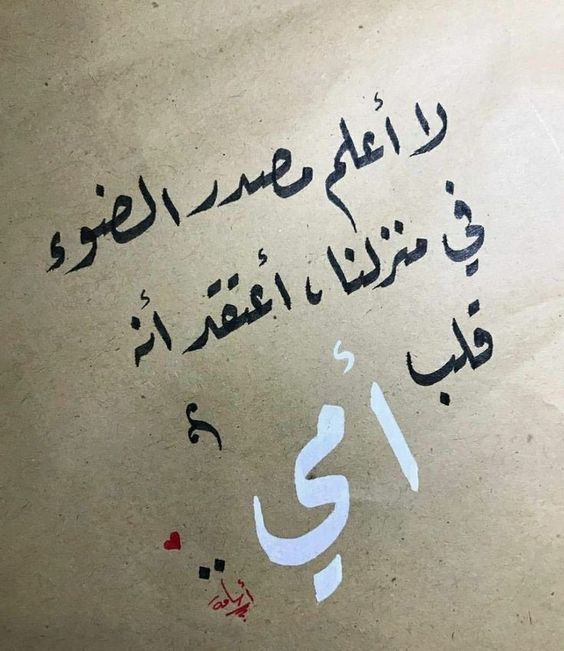 لا أعلم مصدر الضوء
في منزلنا، أعتقد أنه
قلب
أمي ..
أسامة